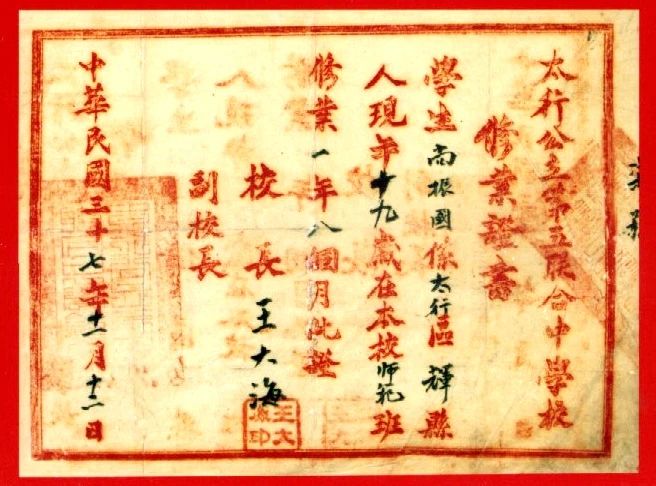 太行公立第五聯合中學校
修業證書
學生尚振國係太行區輝縣
人現年十九歲在本校師範班
修業一年八個月此證
校長王大海
副校長
中華民國三十七年十一月十二日
王大海印